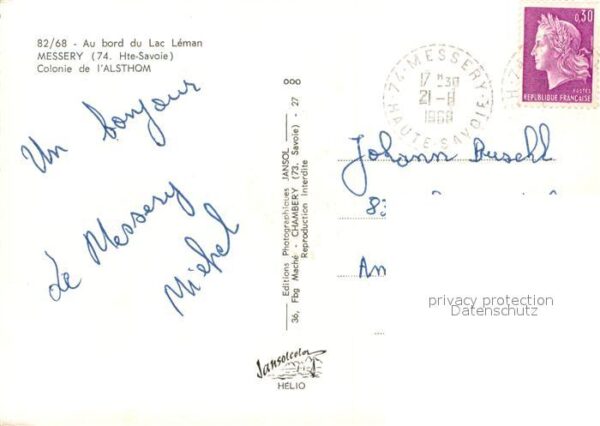 82/68 - Au bord du Lac Léman
MESSERY (74. Hte-Savoie)
Colonie de l'ALSTHOM
Un bonjour
de Messery
Michel
Editions Photographiques JANSOL
36, Fbg Maché - CHAMBERY (73. Savoie) - 27
Reproduction Interdite
Jansolcolor
HÉLIO
74-MESSERY
17 H30
21-8
1968
HAUTE-SAVOIE
0,30
POSTES
REPUBLIQUE FRANÇAISE
Johann
privacy protection
Datenschutz